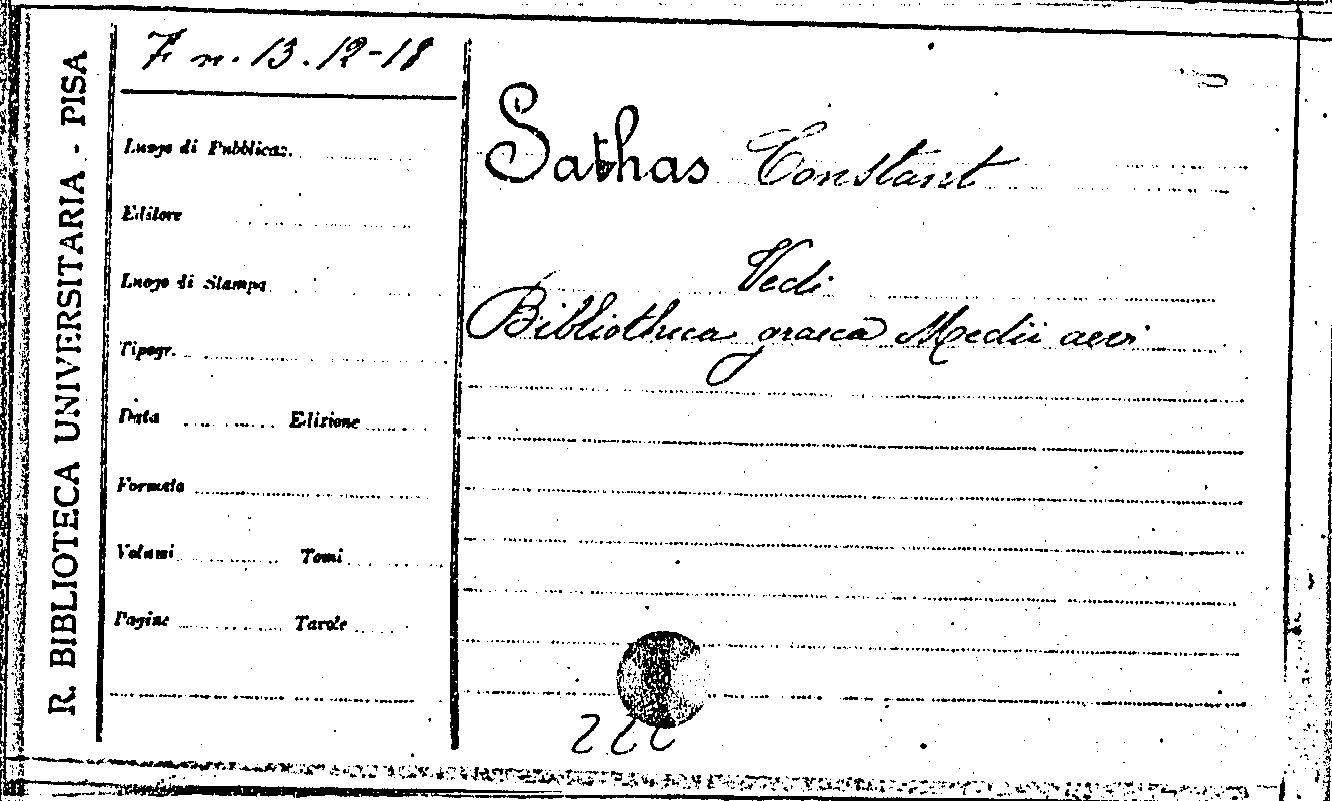 R. BIBLIOTECA UNIVERSITARIA - PISA
F. n. 13. 12-18
Luogo di Pubblicaz.
Editore
Luogo di Stampa
Tipogr.
Data Edizione
Formato
Volumi Tomi
Pagine Tavole
Sathas Constant
Vedi
Bibliotheca graeca Medii aevi